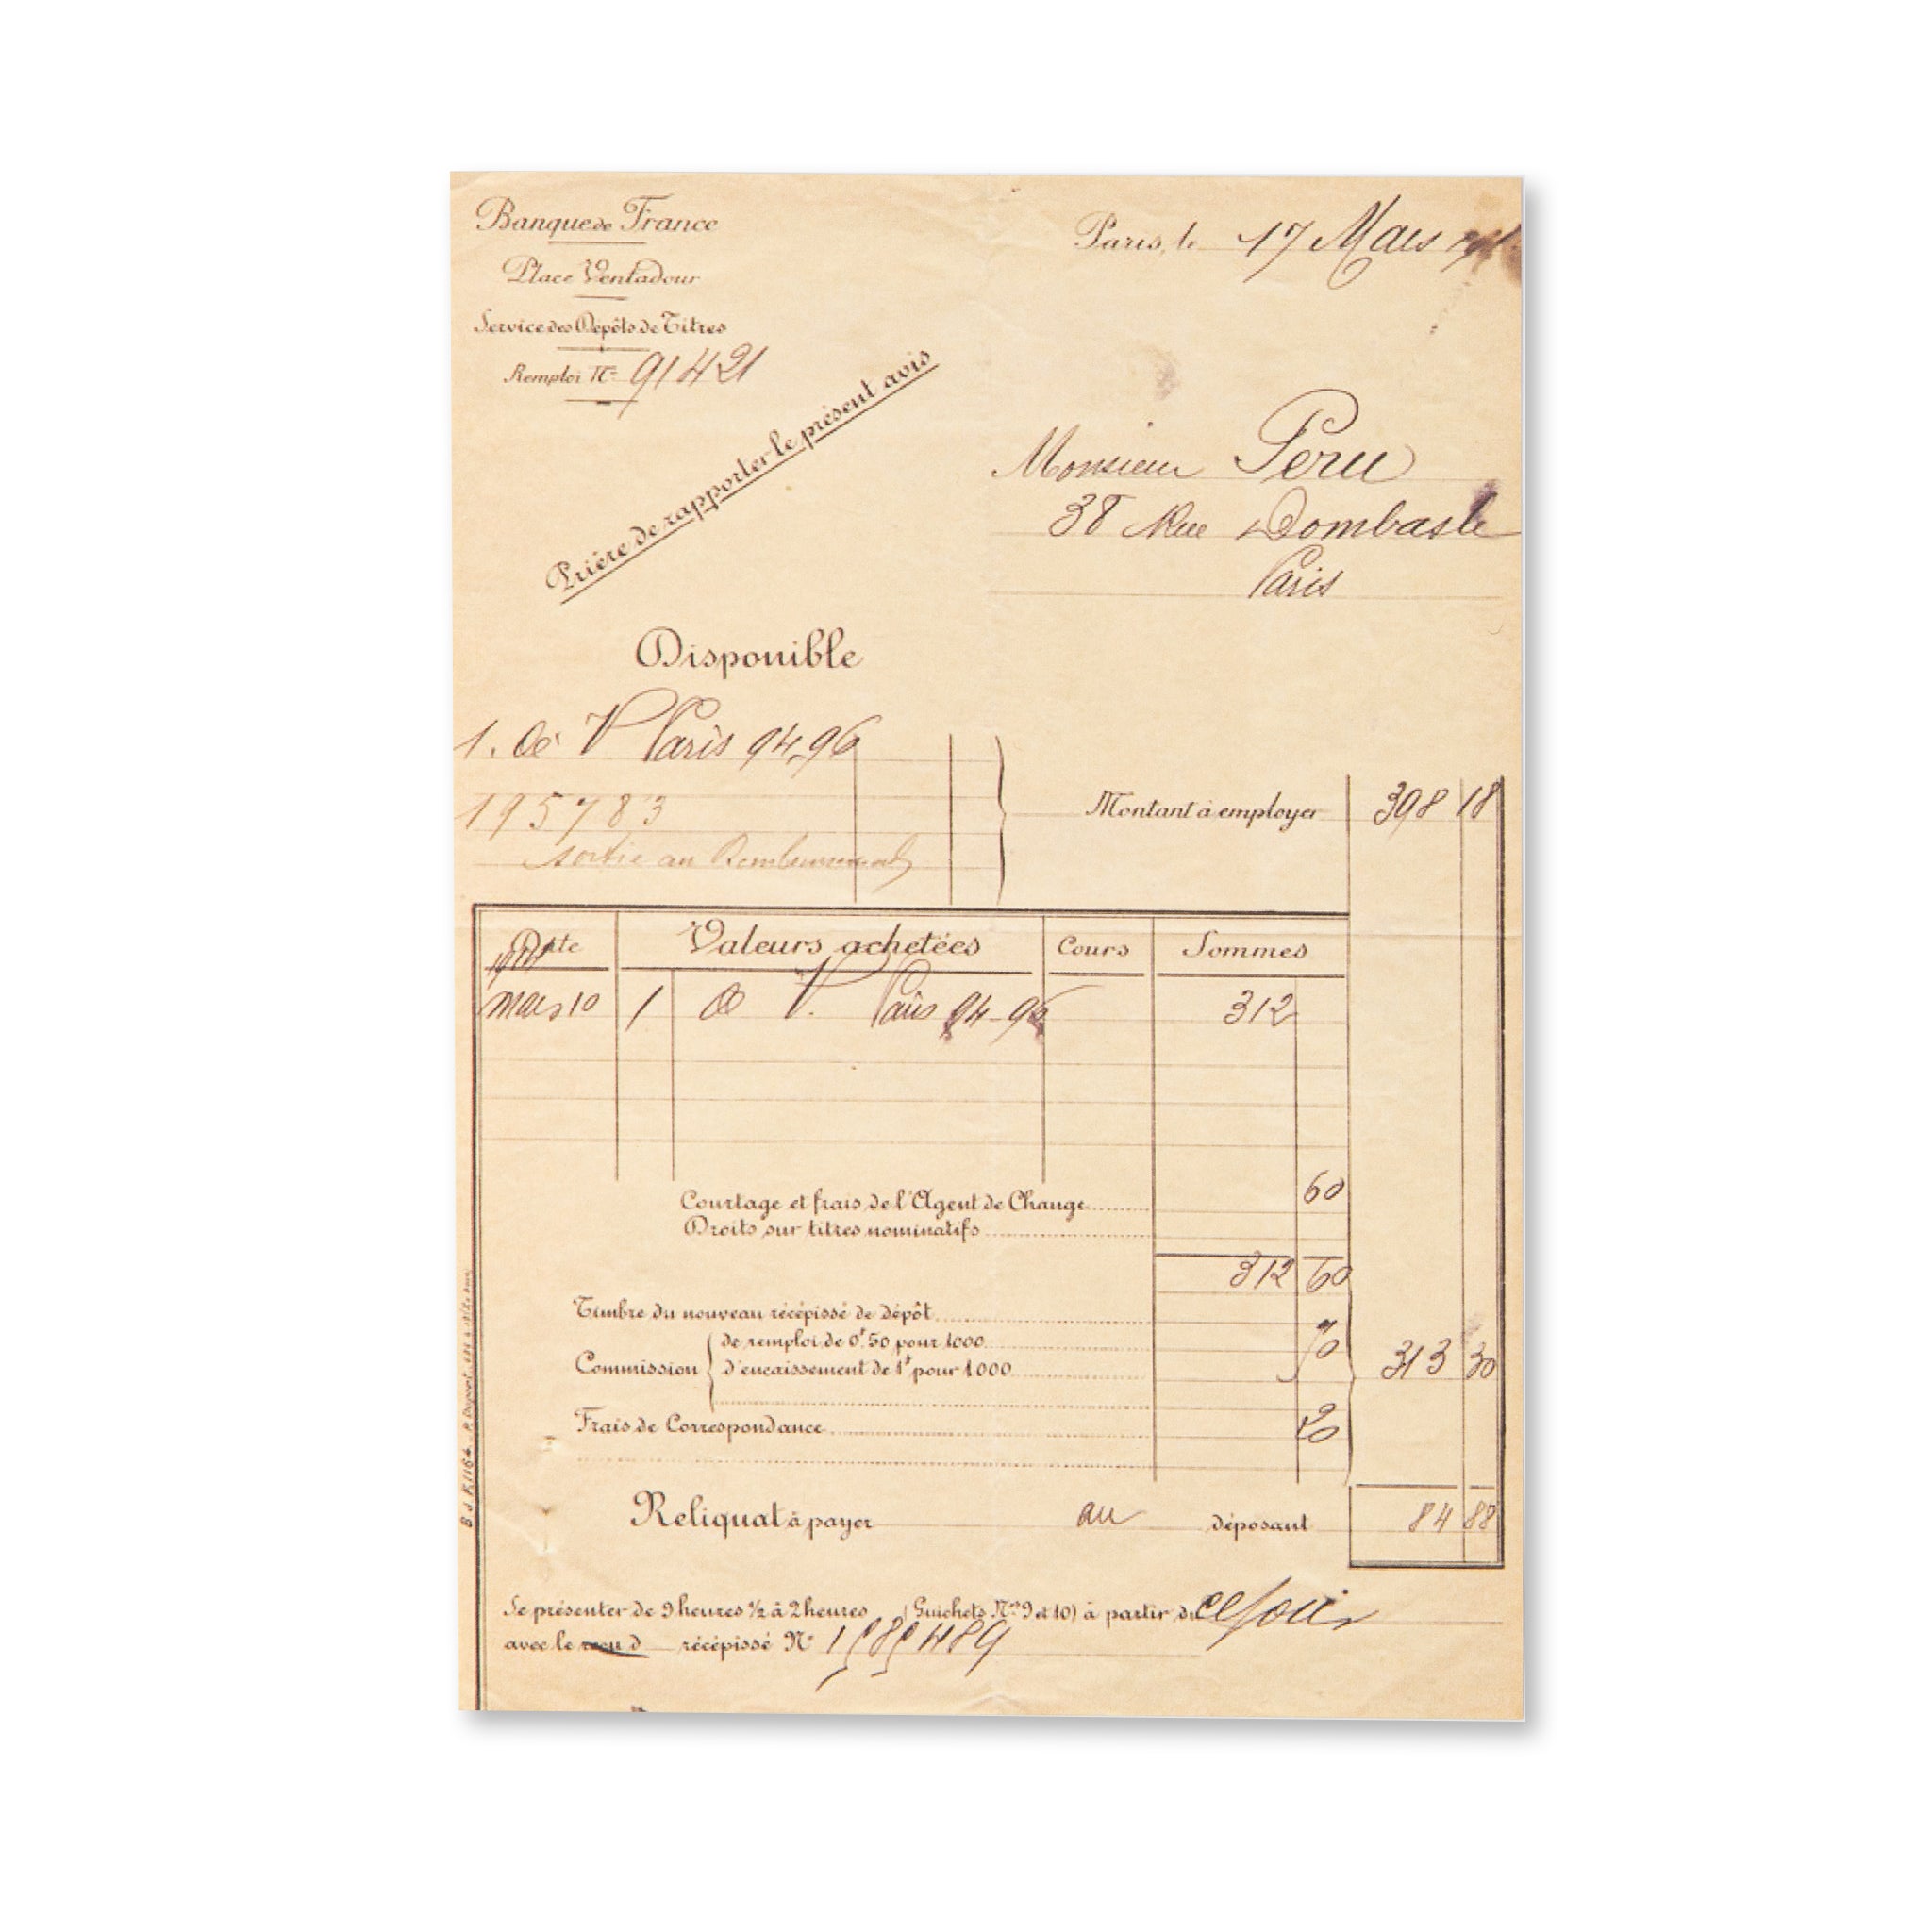 Banque de France
Place Ventadour
Service des Dépôts de Titres
Remploi N° 91421
Paris, le 17 Mars
Prière de rapporter le présent avis
Monsieur Peru
38 Rue Dombasle
Paris
Disponible
1. Oe V Paris 94-96
195783
sortie au Remboursement
Montant à employer 398 18
Date Valeurs achetées Cours Sommes
Mars 10 1 O V. Paris 94-96 312
Courtage et frais de l'Agent de Change 60
Droits sur titres nominatifs
312 60
Timbre du nouveau récépissé de dépôt
Commission de remploi de 0f.50 pour 1000 70
d'encaissement de 1f pour 1000 313 30
Frais de Correspondance 20
Reliquat à payer au déposant 84 88
Se présenter de 9 heures ½ à 2 heures (Guichets Nos 9 et 10) à partir de ce jour
avec le récépissé N°